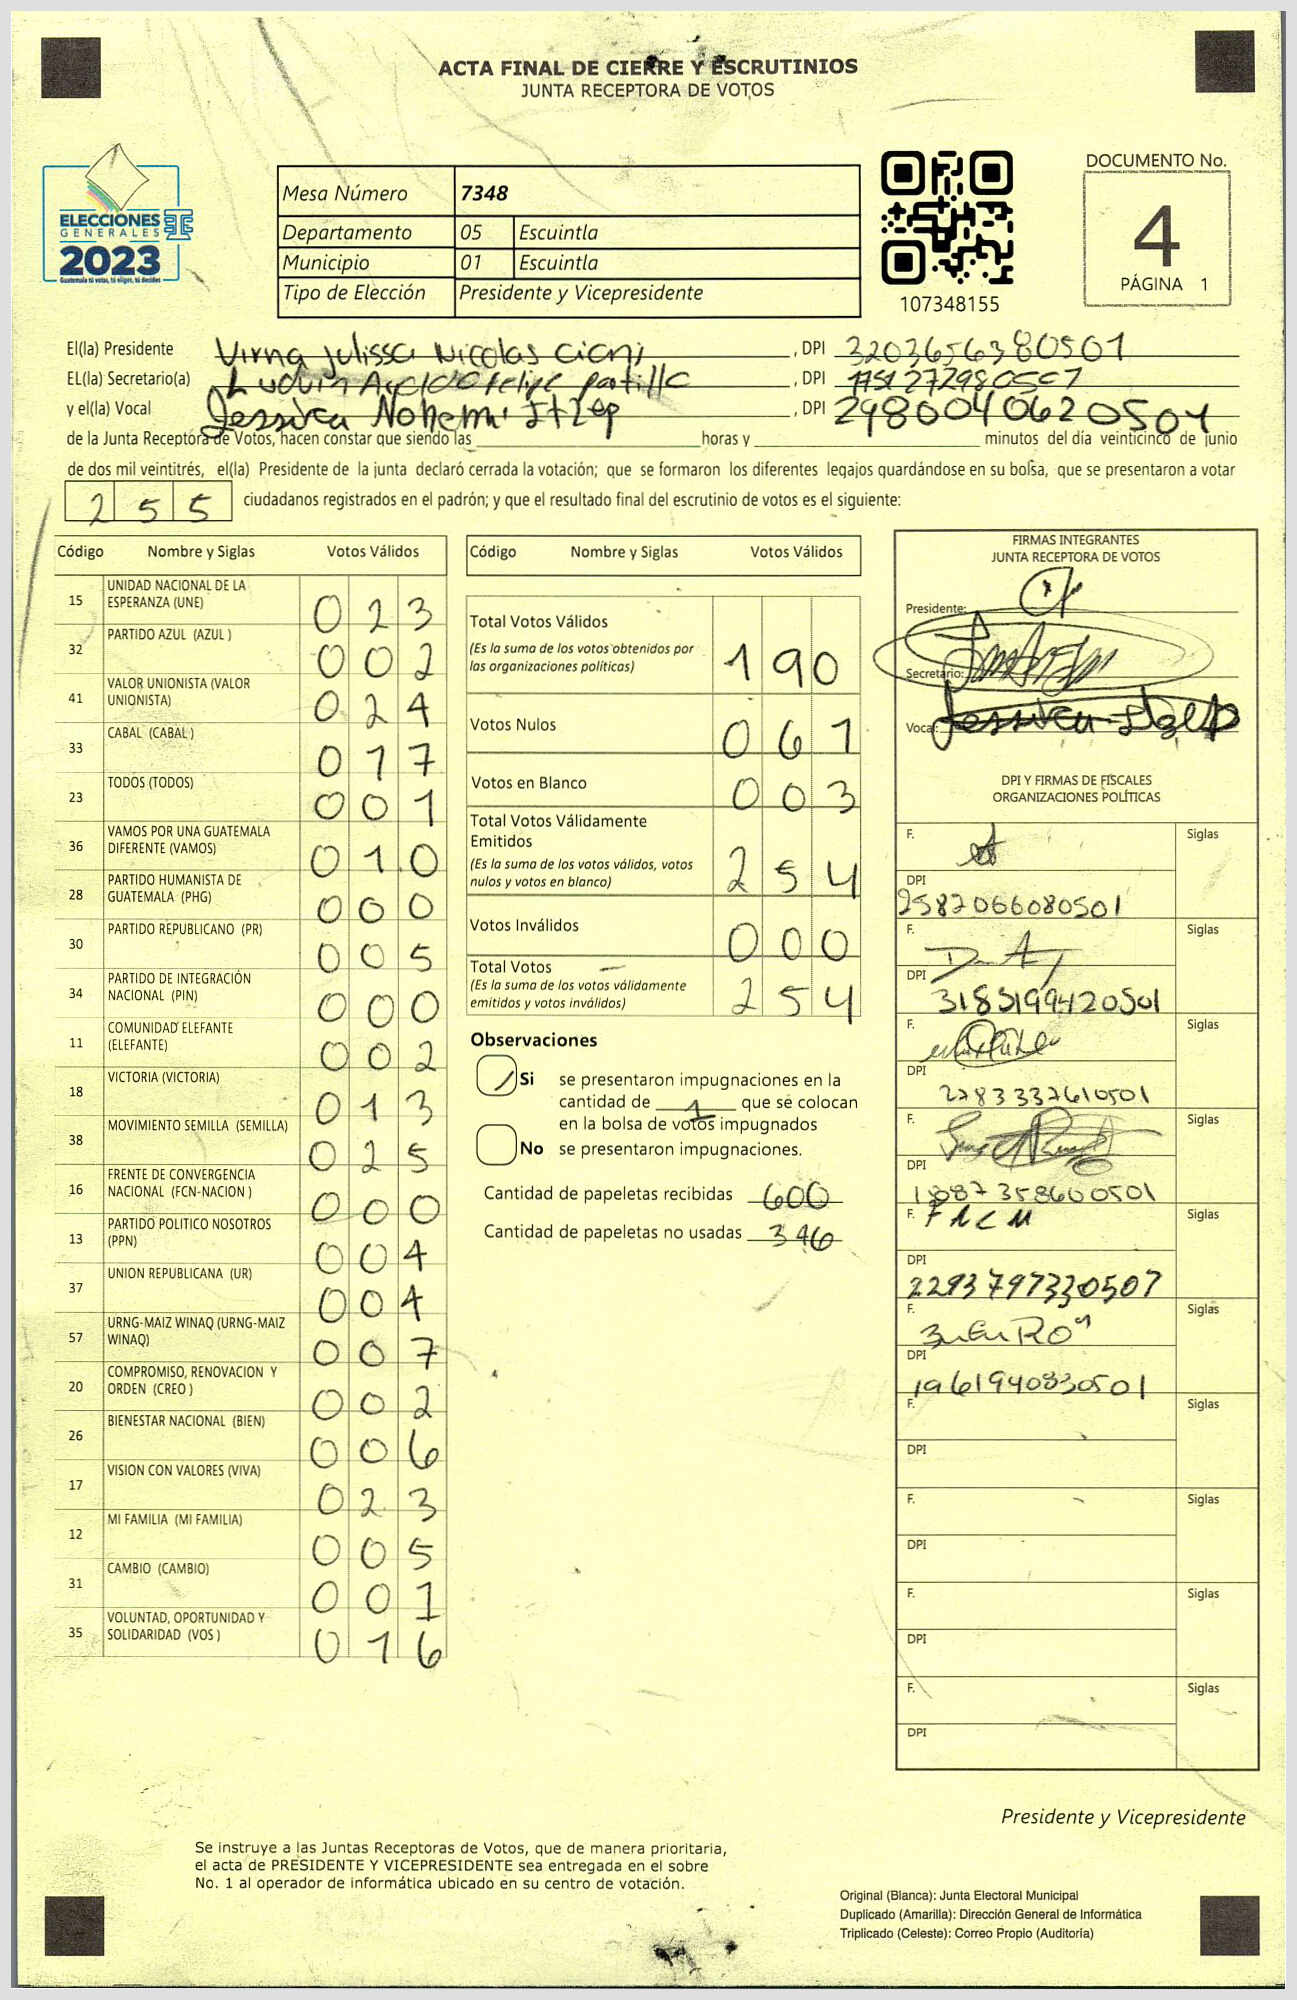 ACTA FINAL DE CIERRE Y ESCRUTINIOS
JUNTA RECEPTORA DE VOTOS
ELECCIONES
GENERALES
2023
Guatemala tú votas, tú eliges, tú decides
Mesa Número 7348
Departamento 05 Escuintla
Municipio 01 Escuintla
Tipo de Elección Presidente y Vicepresidente
107348155
DOCUMENTO No.
4
PÁGINA 1
El(la) Presidente Virna Julissa Nicolas , DPI 3203656380501
EL(la) Secretario(a) Felipe Portillo , DPI
y el(la) Vocal Jessica Nohemi Itzep , DPI 2980040620501
de la Junta Receptora de Votos, hacen constar que siendo las horas y minutos del día veinticinco de junio
de dos mil veintitrés, el(la) Presidente de la junta declaró cerrada la votación; que se formaron los diferentes legajos quardándose en su bolsa, que se presentaron a votar
255 ciudadanos registrados en el padrón; y que el resultado final del escrutinio de votos es el siguiente:
Código Nombre y Siglas Votos Válidos
15 UNIDAD NACIONAL DE LA ESPERANZA (UNE) 023
32 PARTIDO AZUL (AZUL ) 002
41 VALOR UNIONISTA (VALOR UNIONISTA) 024
33 CABAL (CABAL ) 017
23 TODOS (TODOS) 001
36 VAMOS POR UNA GUATEMALA DIFERENTE (VAMOS) 010
28 PARTIDO HUMANISTA DE GUATEMALA (PHG) 000
30 PARTIDO REPUBLICANO (PR) 005
34 PARTIDO DE INTEGRACIÓN NACIONAL (PIN) 000
11 COMUNIDAD ELEFANTE (ELEFANTE) 002
18 VICTORIA (VICTORIA) 013
38 MOVIMIENTO SEMILLA (SEMILLA) 025
16 FRENTE DE CONVERGENCIA NACIONAL (FCN-NACION ) 000
13 PARTIDO POLITICO NOSOTROS (PPN) 004
37 UNION REPUBLICANA (UR) 004
57 URNG-MAIZ WINAQ (URNG-MAIZ WINAQ) 007
20 COMPROMISO, RENOVACION Y ORDEN (CREO ) 002
26 BIENESTAR NACIONAL (BIEN) 006
17 VISION CON VALORES (VIVA) 023
12 MI FAMILIA (MI FAMILIA) 005
31 CAMBIO (CAMBIO) 001
35 VOLUNTAD, OPORTUNIDAD Y SOLIDARIDAD (VOS ) 016
Código Nombre y Siglas Votos Válidos
Total Votos Válidos 190
(Es la suma de los votos obtenidos por
las organizaciones políticas)
Votos Nulos 061
Votos en Blanco 003
Total Votos Válidamente
Emitidos 254
(Es la suma de los votos válidos, votos
nulos y votos en blanco)
Votos Inválidos 000
Total Votos 254
(Es la suma de los votos válidamente
emitidos y votos inválidos)
Observaciones
Si se presentaron impugnaciones en la
cantidad de 1 que se colocan
en la bolsa de votos impugnados
No se presentaron impugnaciones.
Cantidad de papeletas recibidas 600
Cantidad de papeletas no usadas 346
FIRMAS INTEGRANTES
JUNTA RECEPTORA DE VOTOS
Presidente:
Secretario:
Vocal: Jessica Itzep
DPI Y FIRMAS DE FISCALES
ORGANIZACIONES POLÍTICAS
F. Siglas
DPI 2587066080501
F. Siglas
DPI 3185199420501
F. Siglas
DPI 2783337610501
F. Siglas
DPI
F. Siglas
DPI 2293797330507
F. Siglas
DPI 1961940830501
F. Siglas
DPI
F. Siglas
DPI
F. Siglas
DPI
F. Siglas
DPI
Presidente y Vicepresidente
Se instruye a las Juntas Receptoras de Votos, que de manera prioritaria,
el acta de PRESIDENTE Y VICEPRESIDENTE sea entregada en el sobre
No. 1 al operador de informática ubicado en su centro de votación.
Original (Blanca): Junta Electoral Municipal
Duplicado (Amarilla): Dirección General de Informática
Triplicado (Celeste): Correo Propio (Auditoría)